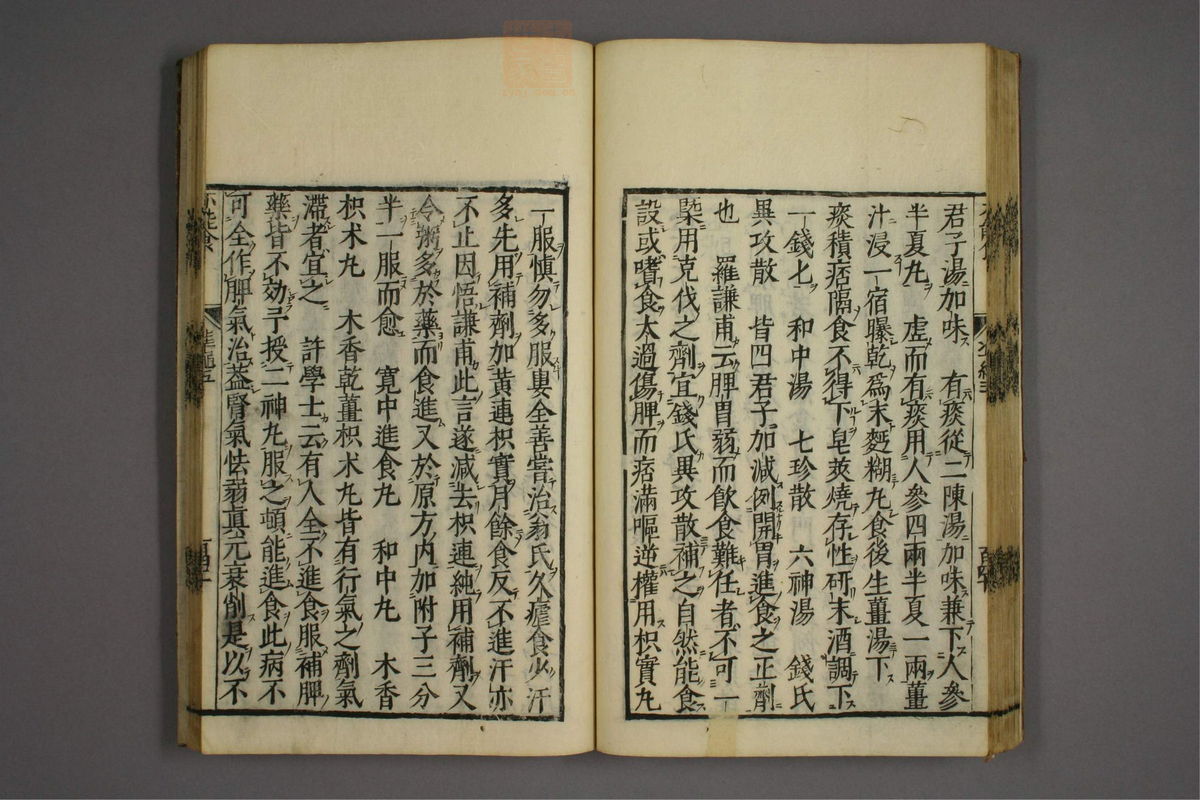 君子湯加味　有痰從二陳湯加味兼下人參
半夏丸　虛而有痰用人參四兩半夏一兩薑
汁浸一宿曝乾爲末麪糊丸食後生薑湯下
痰積痞隔食不得下皂莢燒存性研末酒調下
一錢匕　和中湯　七珍散　六神湯　錢氏
異攻散　皆四君子加減例開胃進食之正劑
也　羅謙甫云脾胃弱而飮食難任者不可一
槩用克伐之劑宜錢氏異攻散補之自然能食
設或嗜食太過傷脾而痞滿嘔逆權用枳實丸
一服愼勿多服㽵全善嘗治翁氏久瘧食少汗
多先用補劑加黃連枳實月餘食反不進汗亦
不止因悟謙甫此言遂減去枳連純用補劑又
令粥多於藥而食進又於原方內加附子三分
半一服而愈　寬中進食丸　和中丸　木香
枳朮丸　木香乾薑枳朮丸皆有行氣之劑氣
滯者宜之　許學士云有人全不進食服補脾
藥皆不効予授二神丸服之頓能進食此病不
可全作脾氣治蓋腎氣怯弱眞元衰削是以不
不能食